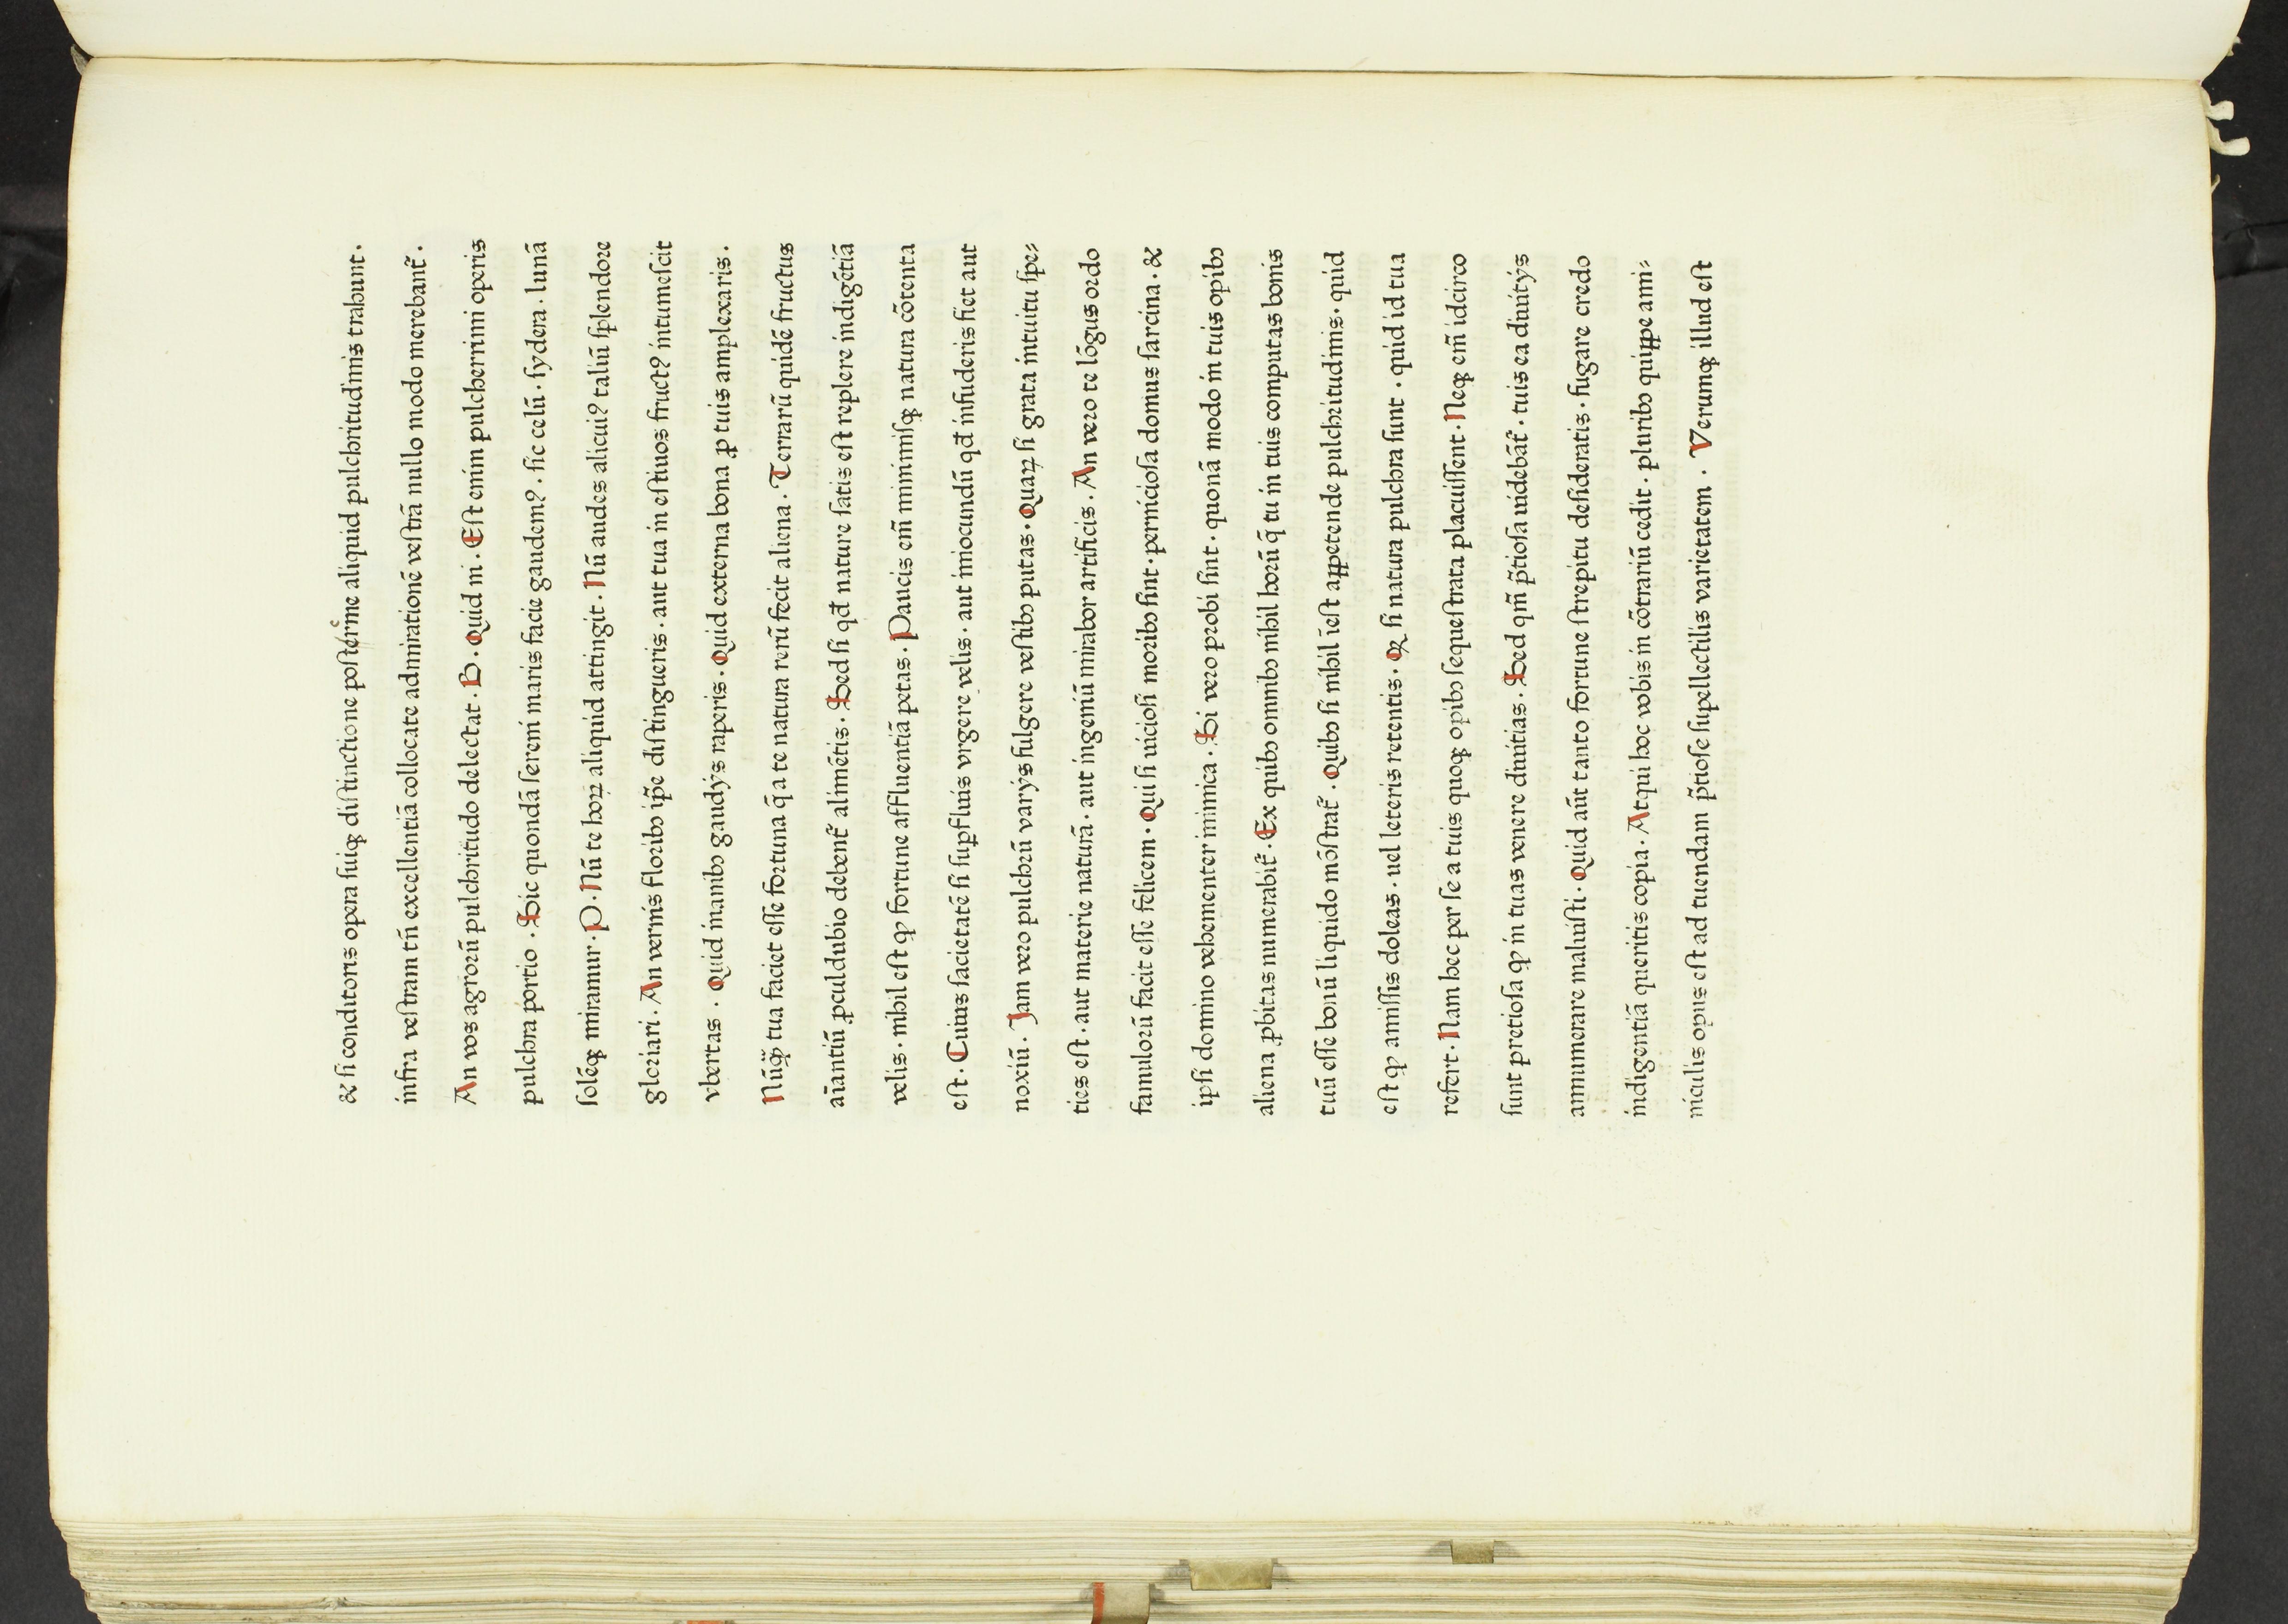 & ſi conditoris opera ſuiqꝫ diſtinctione poſterͤme aliquid pulchritudinis trahunt .
infra veſtram tñ excellentiā collocate admirationē veſtrā nullo modo merebant᷑ .
An vos agrorū pulchritudo delectat . B . Quid ni . Eſt enim pulcherrimi operis
pulchra portio . Sic quondā ſereni maris facie gaudemꝰ . ſic celū . ſydera . lunā
ſolēqꝫ miramur . P . Nū te hoꝝ aliquid attingit . Nū audes alicuiꝰ taliū ſplendore
gloriari . An vernis floribꝫ ip̄e diſtingueris . aut tua in eſtiuos fructꝰ intumeſcit
vbertas . Quid inanibꝫ gaudijs raperis . Quid externa bona ꝓ tuis amplexaris .
Nūqꝫ̄ tua faciet eſſe fortuna q̄ a te natura rerū fecit aliena . Terrarū quidē fructus
aīantiū ꝓculdubio debent᷑ alimētis . Sed ſi qđ nature ſatis eſt replere indigētiā
velis . nihil eſt ꝙ fortune affluentiā petas . Paucis em̄ minimiſqꝫ natura cōtenta
eſt . Cuius ſacietatē ſi ſuꝑfluis vrgere velis . aut iniocundū qđ infuderis fiet aut
noxiū . Jam vero pulchrū varijs fulgere veſtibꝫ putas . Quaꝝ ſi grata intuitu ſpe⸗
ties eſt . aut materie naturā . aut ingeniū mirabor artificis . An vero te lōgus ordo
famulorū facit eſſe felicem . Qui ſi uicioſi moribꝫ ſint . pernicioſa domus ſarcina . &
ipſi domino vehementer inimica . Si vero probi ſint . quonā modo in tuis opibꝫ
aliena ꝓbitas numerabit᷑ . Ex quibꝫ omnibꝫ nihil horū q̄ tu in tuis computas bonis
tuū eſſe bonū liquido mōſtrat᷑ . Quibꝫ ſi nihil īeſt appetende pulchritudinis . quid
eſt ꝙ amiſſis doleas . uel leteris retentis . Q ſi natura pulchra ſunt . quid id tua
refert . Nam hec per ſe a tuis quoqꝫ opibꝫ ſequeſtrata placuiſſent . Neqꝫ em̄ idcirco
ſunt pretioſa ꝙ in tuas venere diuitias . Sed qm̄ p̄tioſa uidebāt᷑ . tuis ea diuitijs
annumerare maluiſti . Quid aūt tanto fortune ſtrepitu deſideratis . fugare credo
indigentiā queritis copia . Atqui hoc vobis in cōtrariū cedit . pluribꝫ quippe ami⸗
niculis opus eſt ad tuendam p̄tioſe ſupellectilis varietatem . Verumqꝫ illud eſt